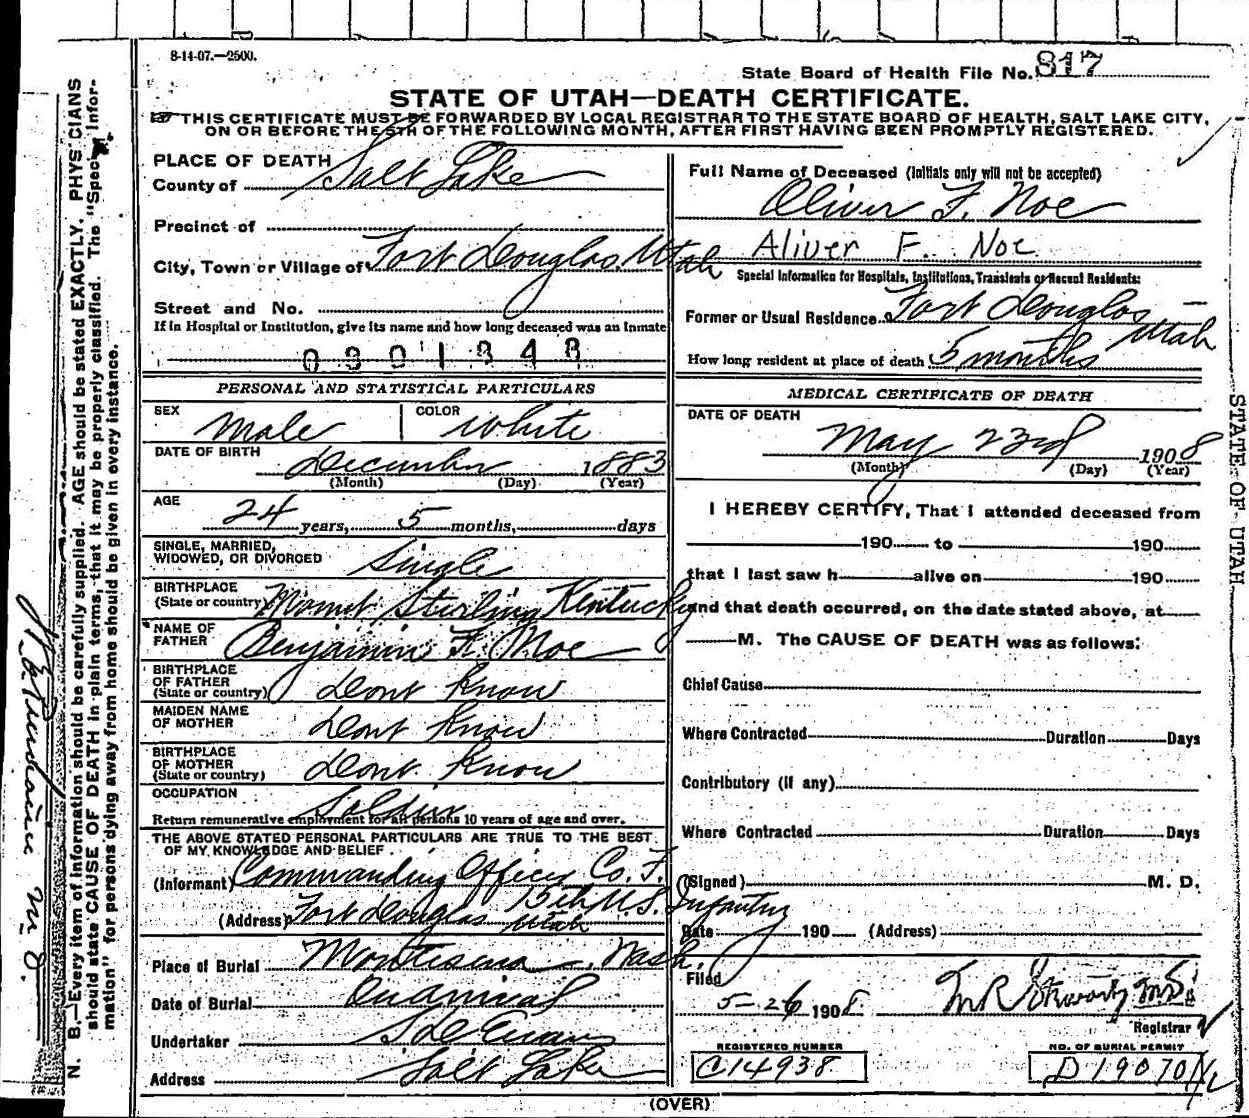 8-14-07.—2500.
State Board of Health File No. 817
STATE OF UTAH—DEATH CERTIFICATE.
THIS CERTIFICATE MUST BE FORWARDED BY LOCAL REGISTRAR TO THE STATE BOARD OF HEALTH, SALT LAKE CITY,
ON OR BEFORE THE 5TH OF THE FOLLOWING MONTH, AFTER FIRST HAVING BEEN PROMPTLY REGISTERED.
PLACE OF DEATH
County of Salt Lake
Precinct of
City, Town or Village of Fort Douglas, Utah
Street and No.
If in Hospital or Institution, give its name and how long deceased was an inmate
0301348
PERSONAL AND STATISTICAL PARTICULARS
SEX Male COLOR White
DATE OF BIRTH December 1883
(Month) (Day) (Year)
AGE
24 years, 5 months, days
SINGLE, MARRIED,
WIDOWED, OR DIVORCED Single
BIRTHPLACE
(State or country) Mount Sterling Kentucky
NAME OF
FATHER Benjamin F. Noe
BIRTHPLACE
OF FATHER
(State or country) Dont Know
MAIDEN NAME
OF MOTHER Dont Know
BIRTHPLACE
OF MOTHER
(State or country) Dont Know
OCCUPATION Soldier
Return remunerative employment for all persons 10 years of age and over.
THE ABOVE STATED PERSONAL PARTICULARS ARE TRUE TO THE BEST
OF MY KNOWLEDGE AND BELIEF.
(Informant) Commanding Officer Co. F.
15th U.S. Infantry
(Address) Fort Douglas Utah
Place of Burial Montesina, Wash.
Date of Burial On Arrival
Undertaker S D Evans
Address Salt Lake
Full Name of Deceased (Initials only will not be accepted)
Oliver F. Noe
Aliver F. Noe
Special Information for Hospitals, Institutions, Transients or Recent Residents:
Former or Usual Residence Fort Douglas
Utah
How long resident at place of death 5 months
MEDICAL CERTIFICATE OF DEATH
DATE OF DEATH
May 23rd 1908
(Month) (Day) (Year)
I HEREBY CERTIFY, That I attended deceased from
190 to 190
that I last saw h alive on 190
and that death occurred, on the date stated above, at
M. The CAUSE OF DEATH was as follows:
Chief Cause
Where Contracted Duration Days
Contributory (if any)
Where Contracted Duration Days
(Signed) M. D.
Date 190 (Address)
Filed
5-26 1908.
Registrar
REGISTERED NUMBER
C14938
NO. OF BURIAL PERMIT
D19070
(OVER)
N. B.—Every item of information should be carefully supplied. AGE should be stated EXACTLY. PHYSICIANS
should state CAUSE OF DEATH in plain terms, that it may be properly classified. The "Special Infor-
mation" for persons dying away from home should be given in every instance.
STATE OF UTAH